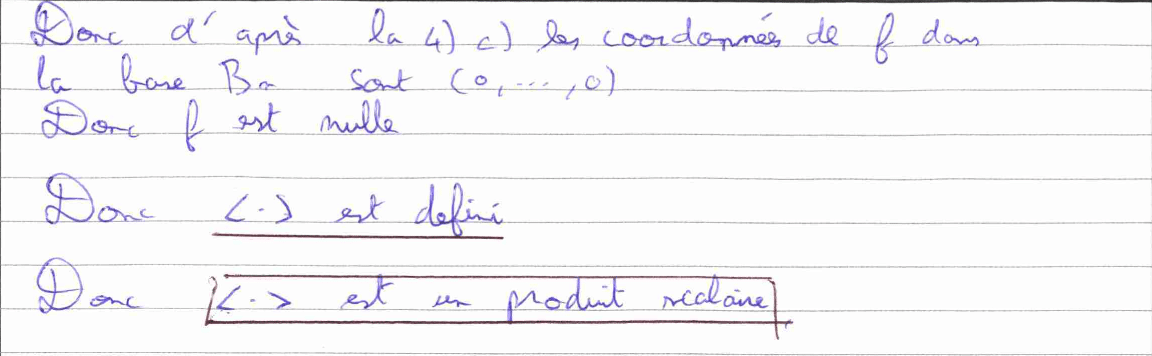 Donc d'après la 4) c) les coordonnées de f dans
la base Bn sont (0, ..., 0)
Donc f est nulle
Donc <.> est defini
Donc <.> est un produit scalaire